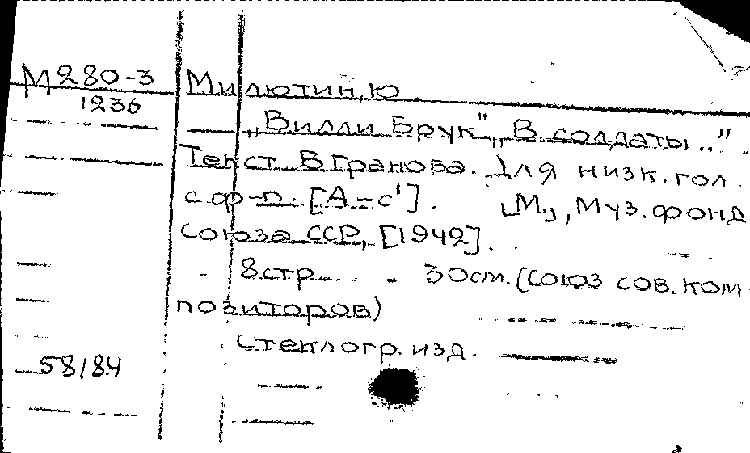 М280-3 Милютин, Ю
1236
„Вилли Брук" „В солдаты.."
Текст В.Гранова. Для низк. гол.
с ф-п. [А-с'].  М., Муз. фонд
союза ССР, [1942].
8стр. - 30см. (союз сов. ком-
позиторов)
Стеклогр. изд.
58184